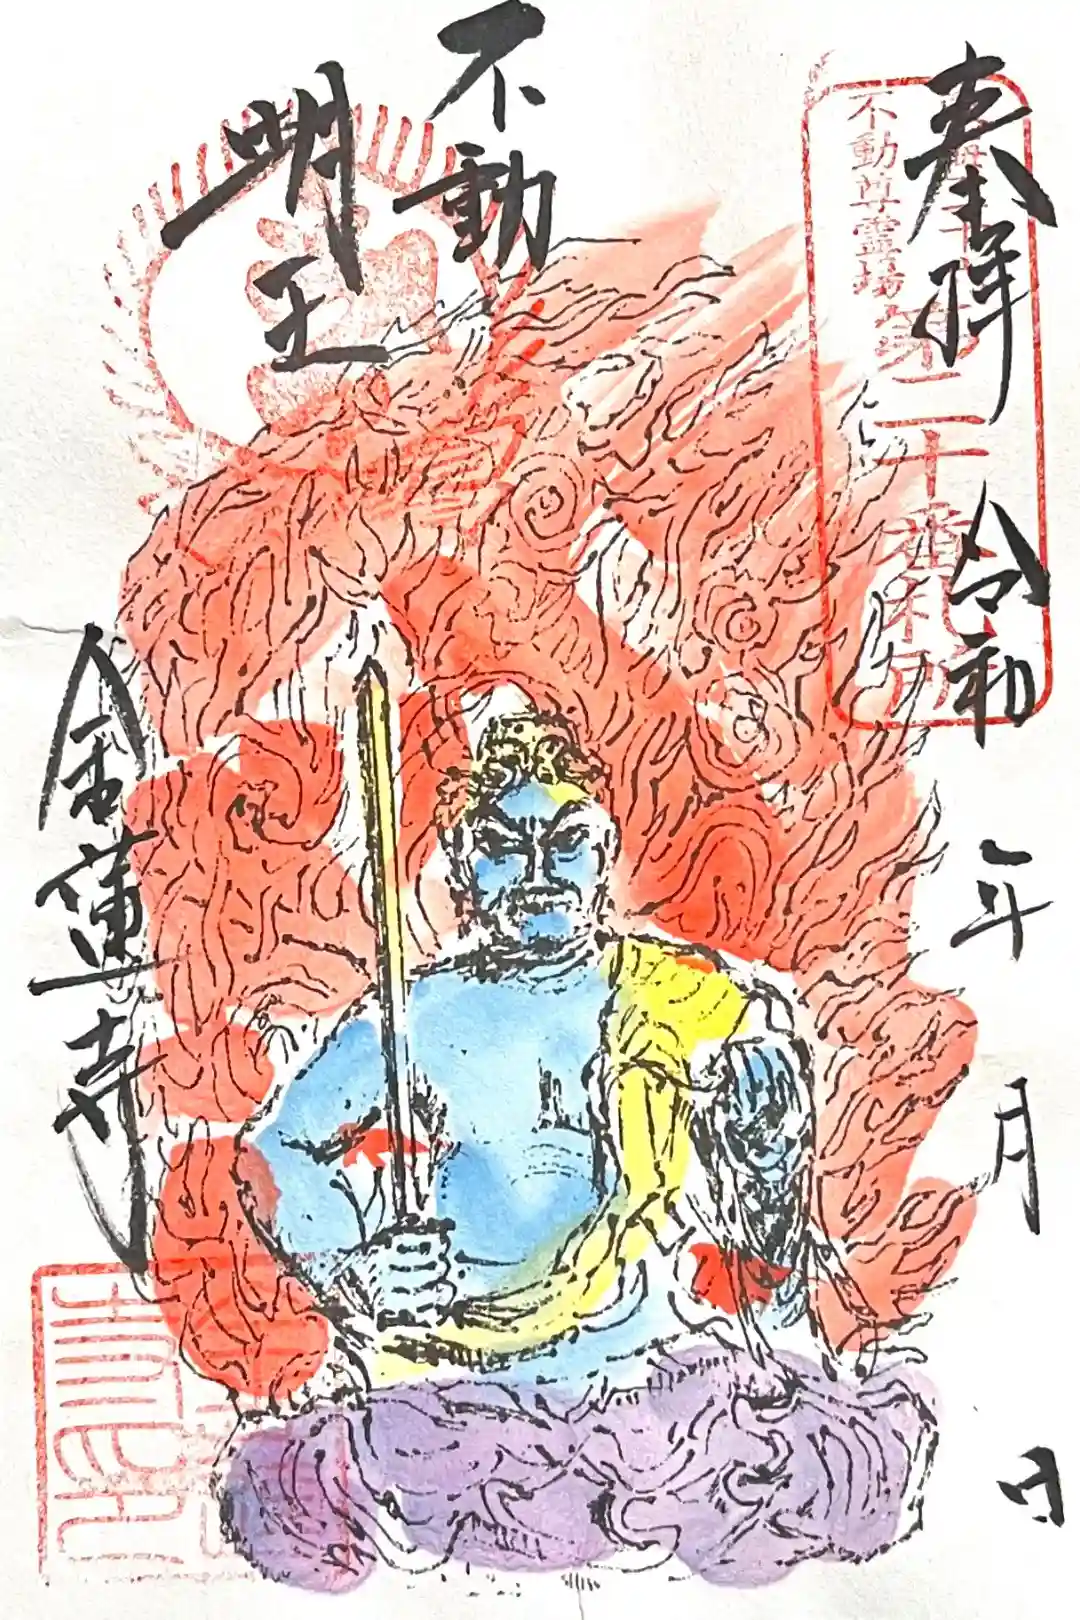 奉拝
令和 年 月 日
不動尊霊場
第二十番札所
不動
明王
金蓮寺